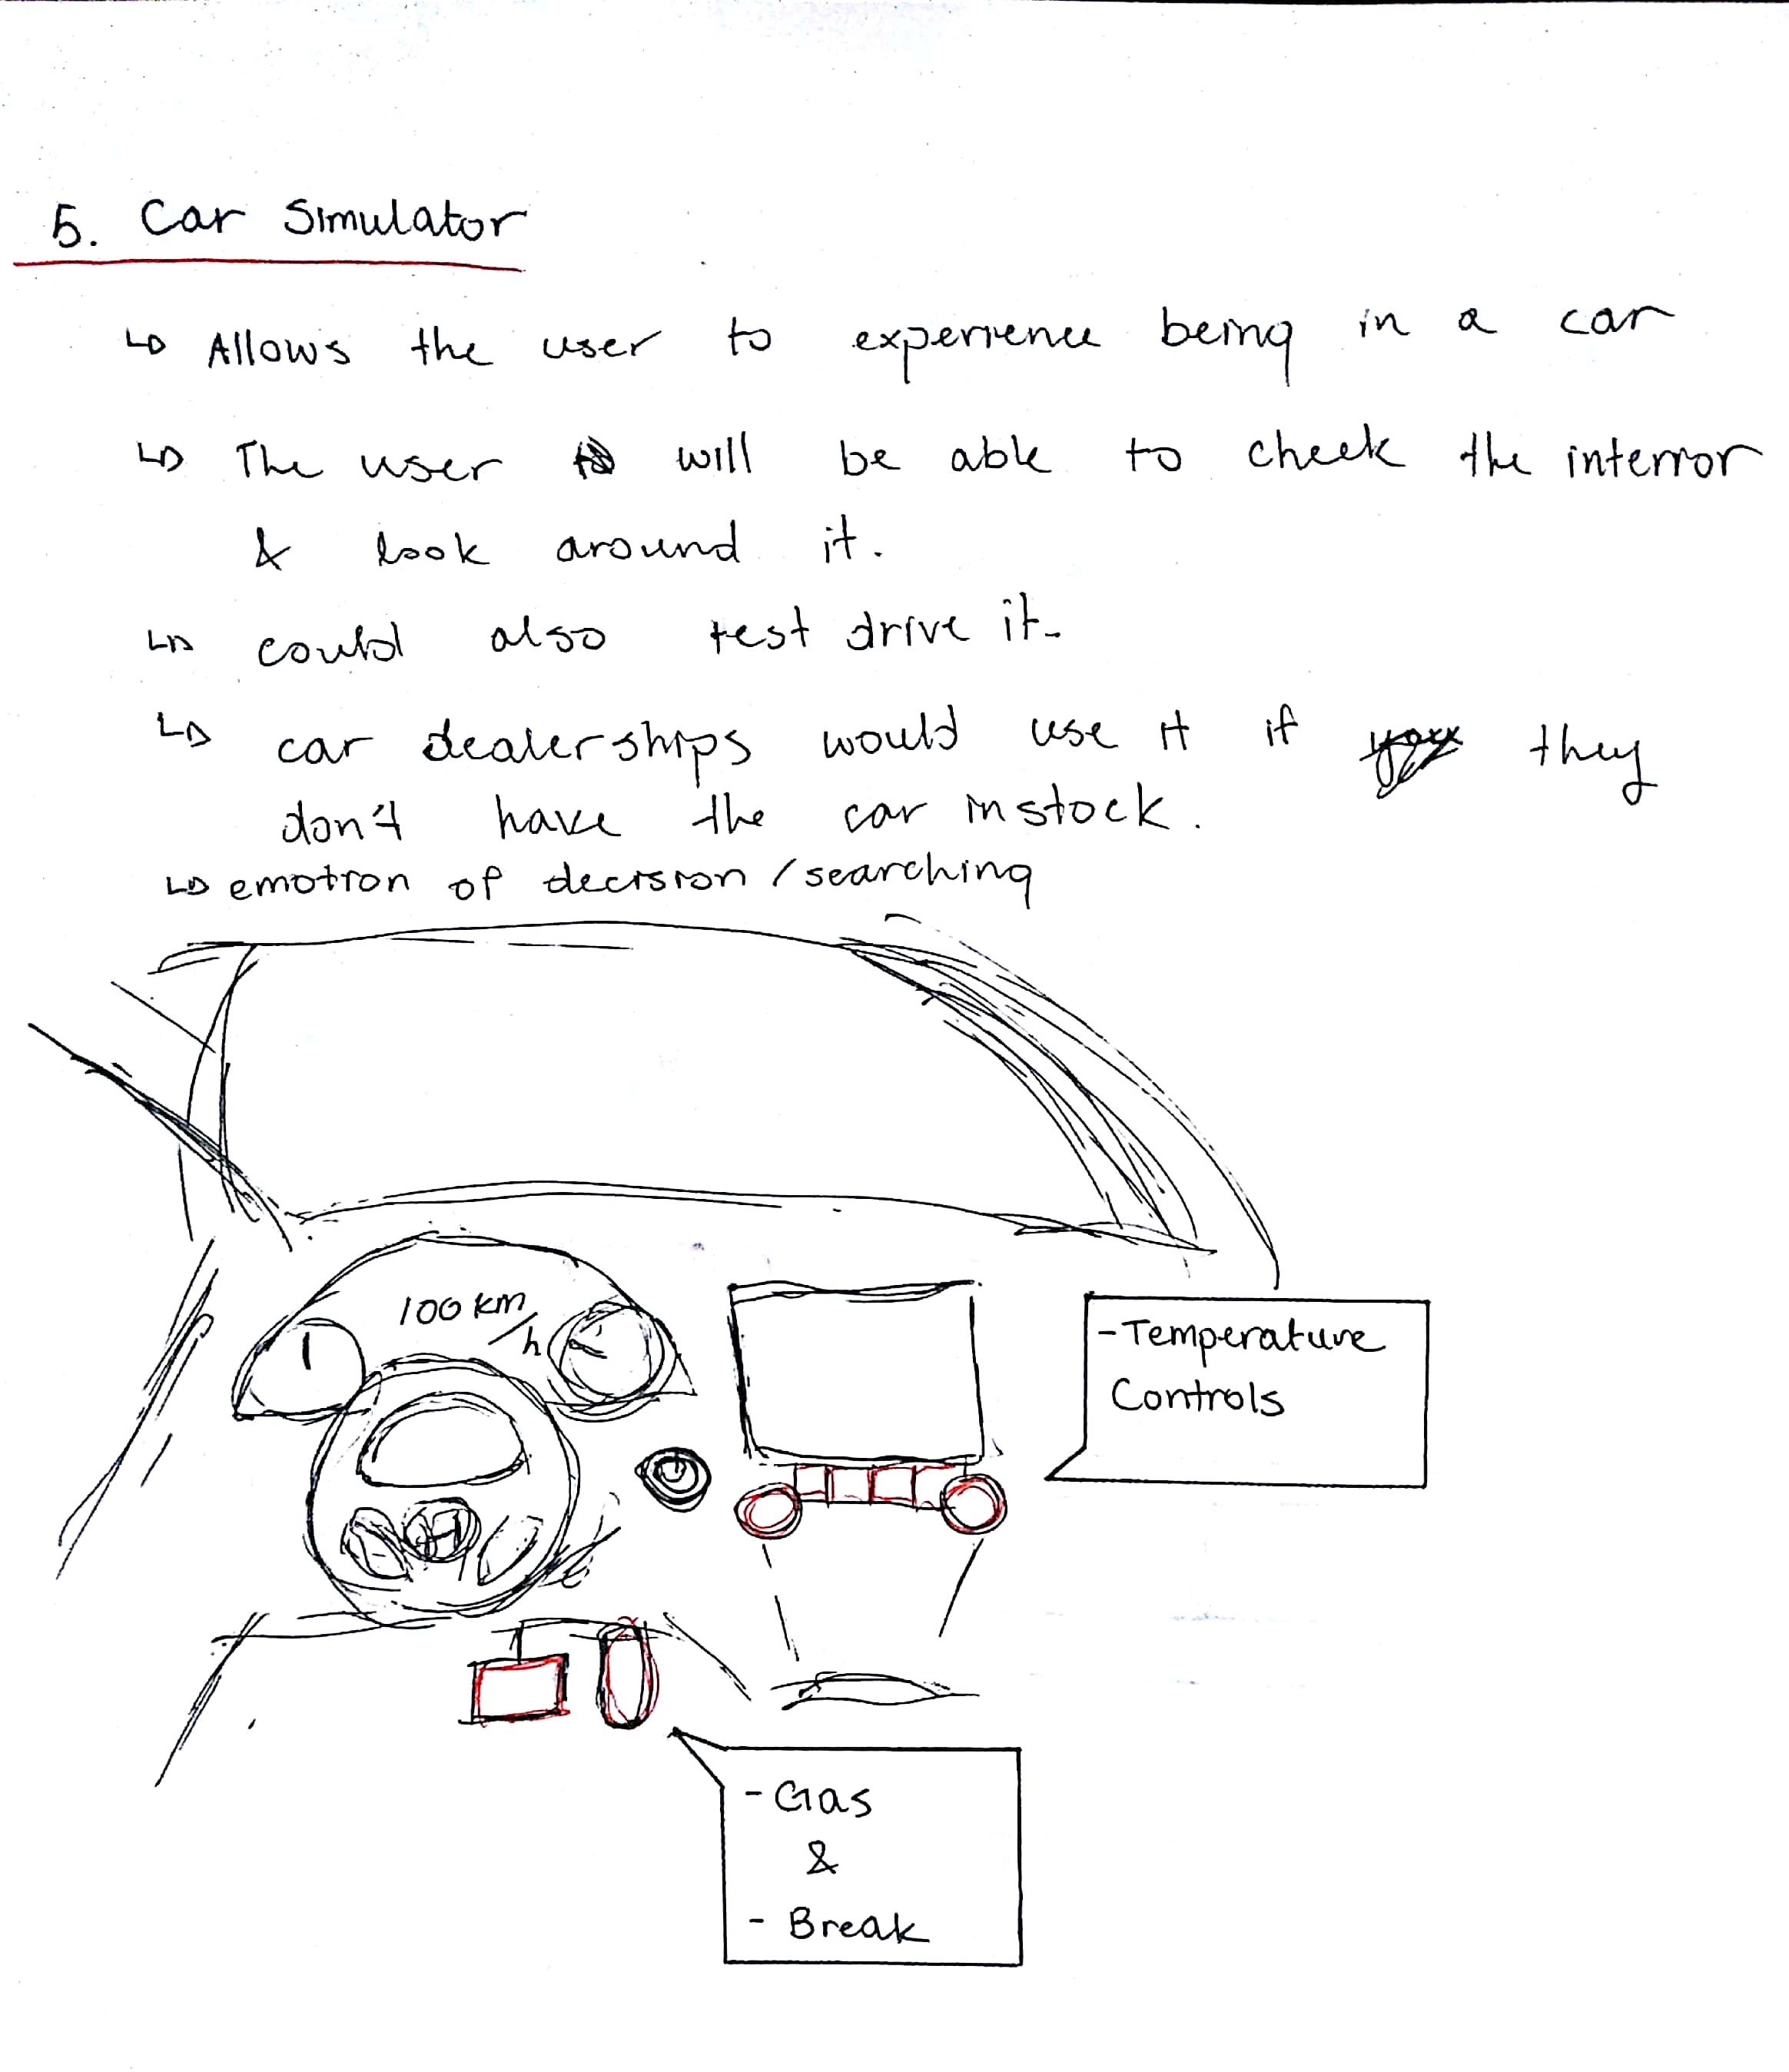 5. Car Simulator
↳ Allows the user to experience being in a car
↳ The user will be able to check the interior
& look around it.
↳ could also test drive it.
↳ car dealerships would use it if they
don't have the car in stock.
↳ emotion of decision / searching
100 km/h
- Temperature
Controls
- Gas
&
- Break